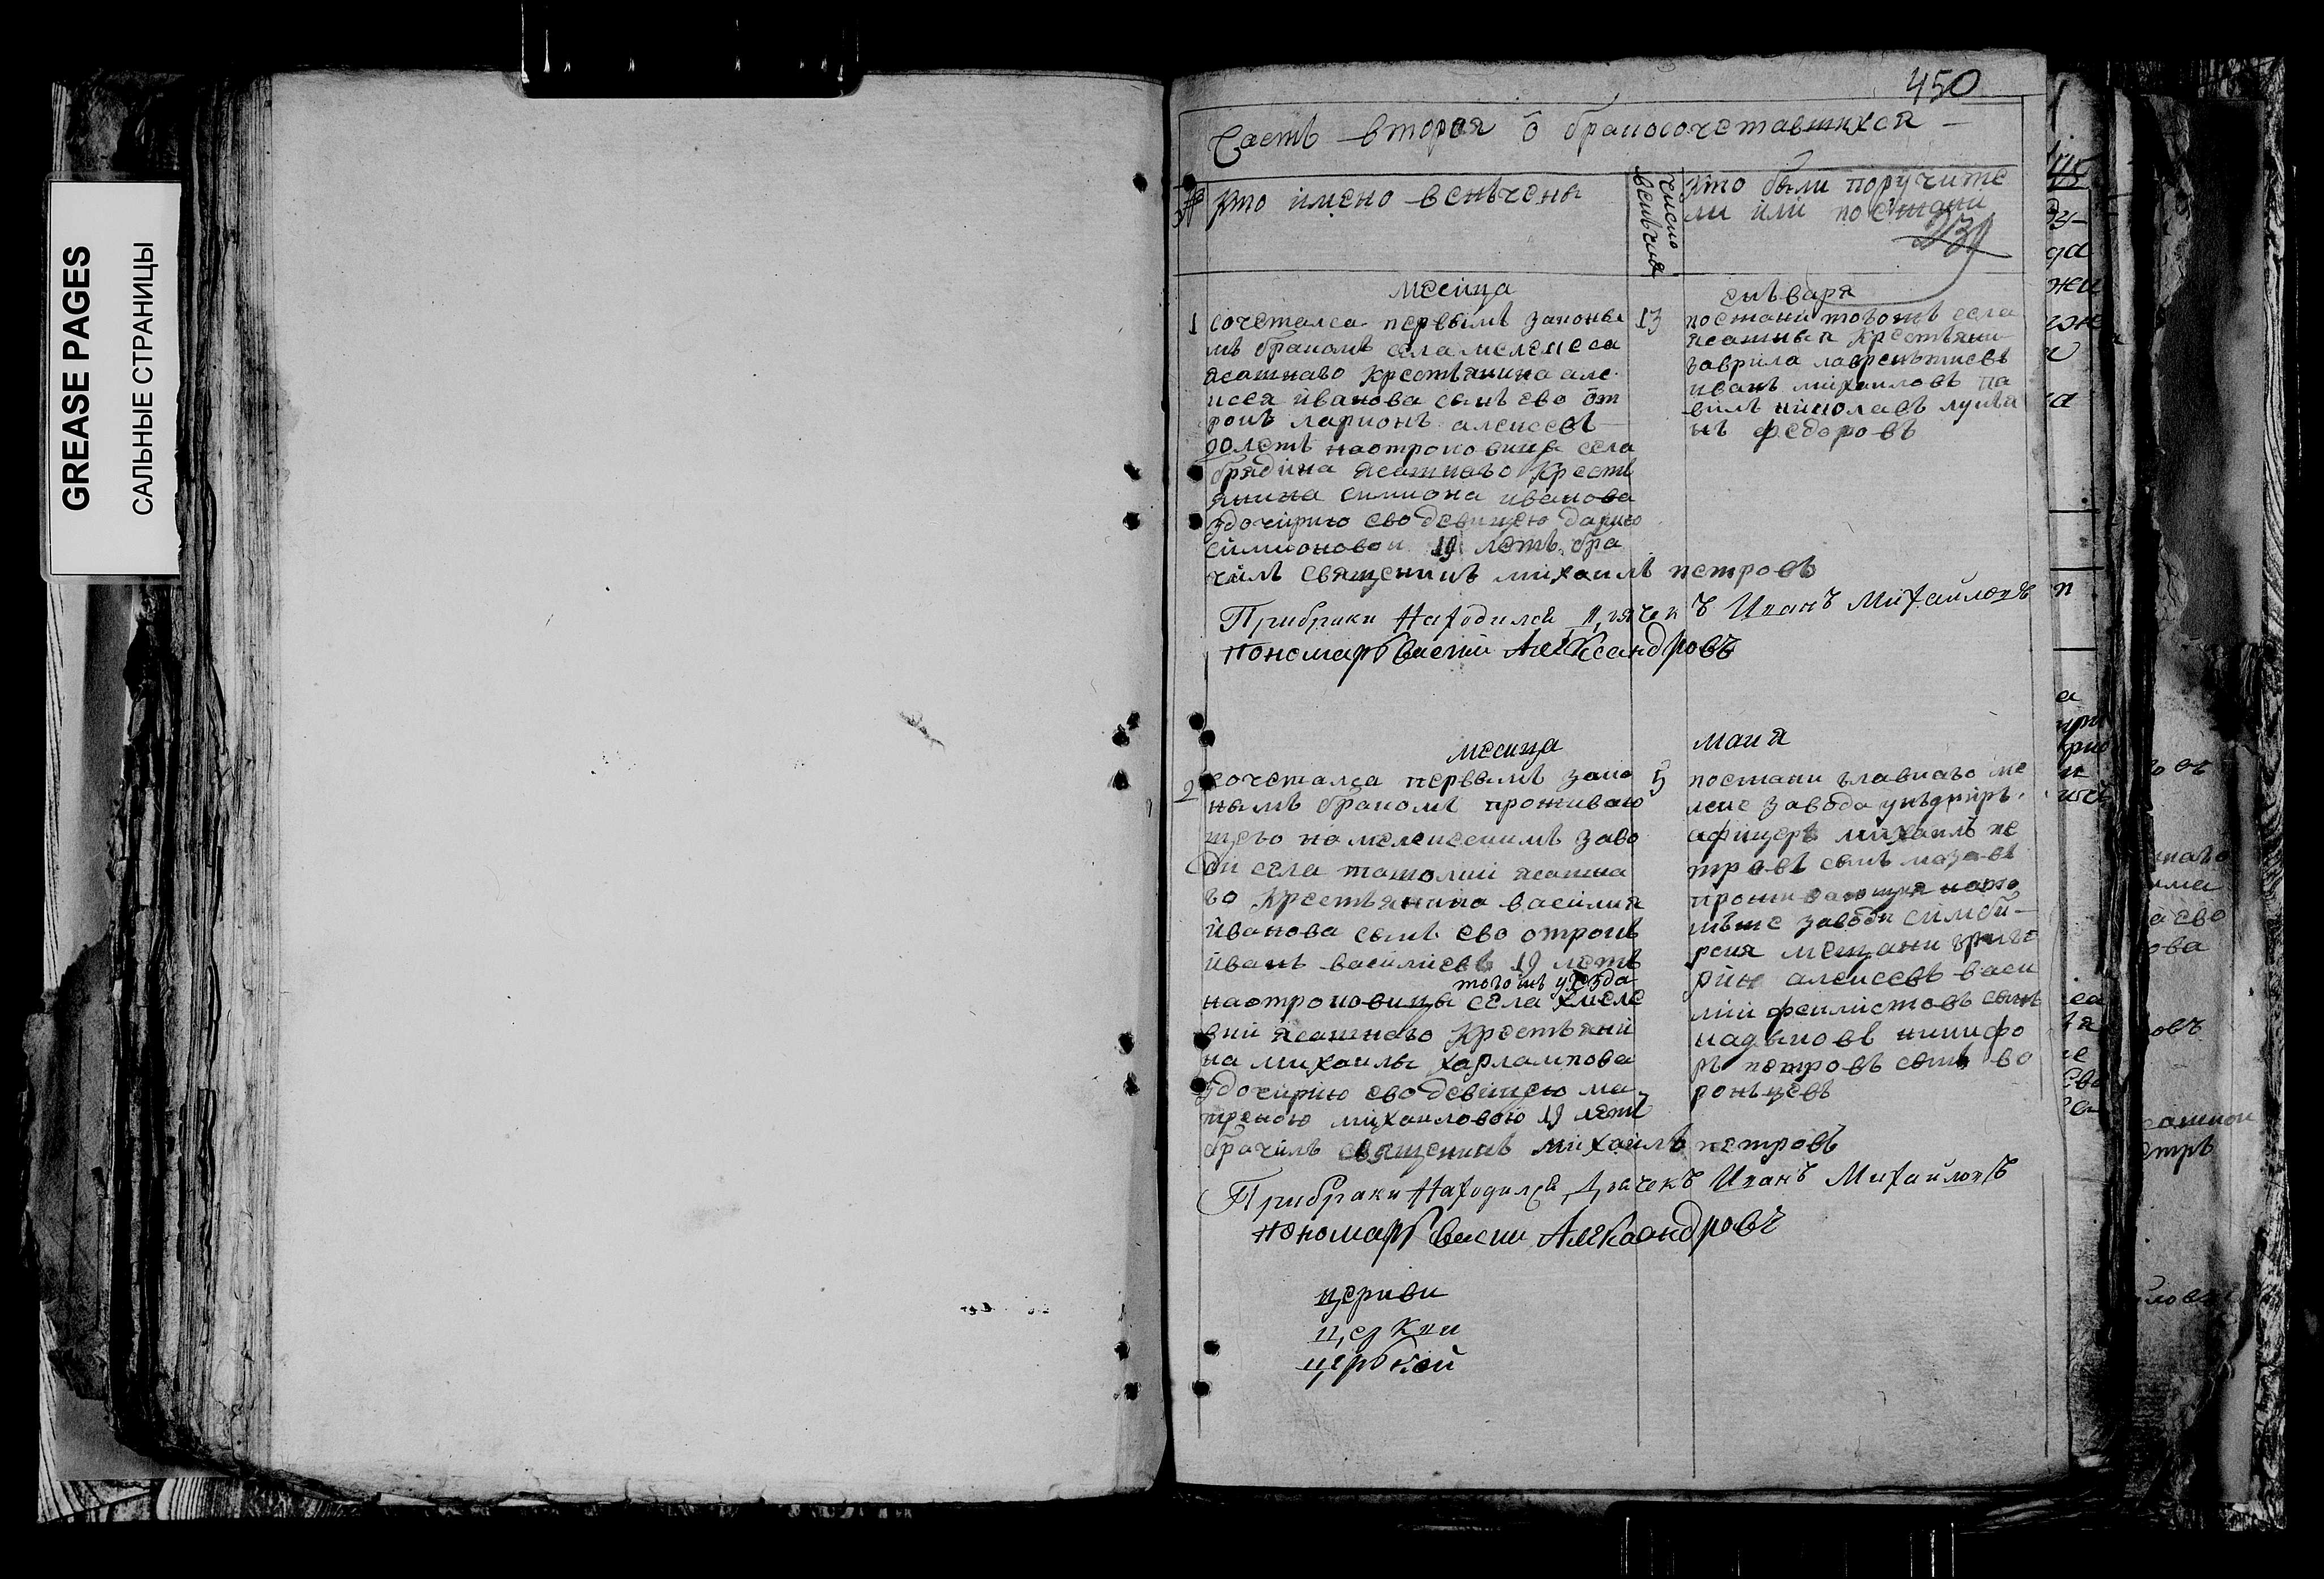 GREASE PAGES
САЛЬНЫЕ СТРАНИЦЫ
450
Часть вторая о бракосочетавшихся
№ кто имено венъчены
число венъчания
кто были поручите
ли или поежани
месица генъваря
1 сочетался первымъ законы
мъ бракомъ села мелекеса
ясашнаго крестьянина але
ксея иванова сынъ ево от
рокъ ларионъ алексеевъ
летъ на отроковице села
брядина ясашнаго крестъ
янина симиона иванова
здочирию ево девицею дарию
симионовои 19 летъ бра
чилъ священикъ михаилъ петровъ
13
поежани тогожъ села
ясашныя крестьяни
гаврила лавренътиевъ
иванъ михаиловъ па
велъ николаевъ лукъя
нъ федоровъ
При браки находился дьячекъ Иванъ Михайловъ
пономарь Васили Александровъ
месица маия
2 сочетался первымъ зако
нымъ бракомъ проживаю
щего на мелекескимъ заво
ди села ясашна
го крестьянина василия
иванова сынъ ево отрокъ
иванъ василиевъ 19 летъ
тогожъ уезда
на отроковицы села
ясашнаго крестьяни
на михаилы харлампова
здочирию ево девицею ма
трёною михаиловою 19 летъ
брачилъ священикъ михаилъ петровъ
5
поежани главнаго ме
леке завода унътиръ
афицеръ михаилъ пе
тровъ сынъ
проживающия натом
мъже заводи симби
рския мещани григо
рий алексеевъ васи
лии феклистовъ сынъ
кадыковъ никифо
ръ петровъ сынъ во
ронъцевъ
При браки находился дьячекъ Иванъ Михайловъ
пономарь Васили Александровъ
церкви
церкви